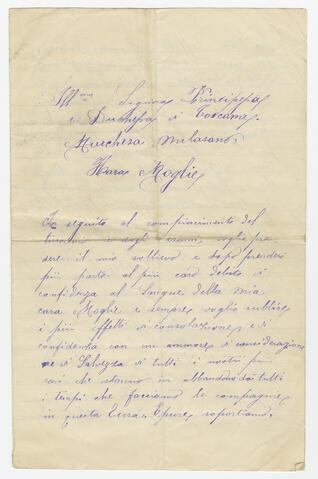 Ill.ma Signora Principessa
e Duchessa di Toscana,
Marchesa Milasano,
Kara Moglie,
In seguito al compiacimento del
e degli voglio pre
dere il mio sollievo e dopo prendere
più parte al più caro debito di
confidenza al Sangue della mia
cara Moglie e sempre voglio subire
i più effetti di consolazione e di
confidenza con un ammore di considerazione
e di Salvezza di tutti i nostri più
cari che stanno in abbandono da tutti
i tempi che facciamo le compagnie
in questa Terra. Epure, soportiamo,